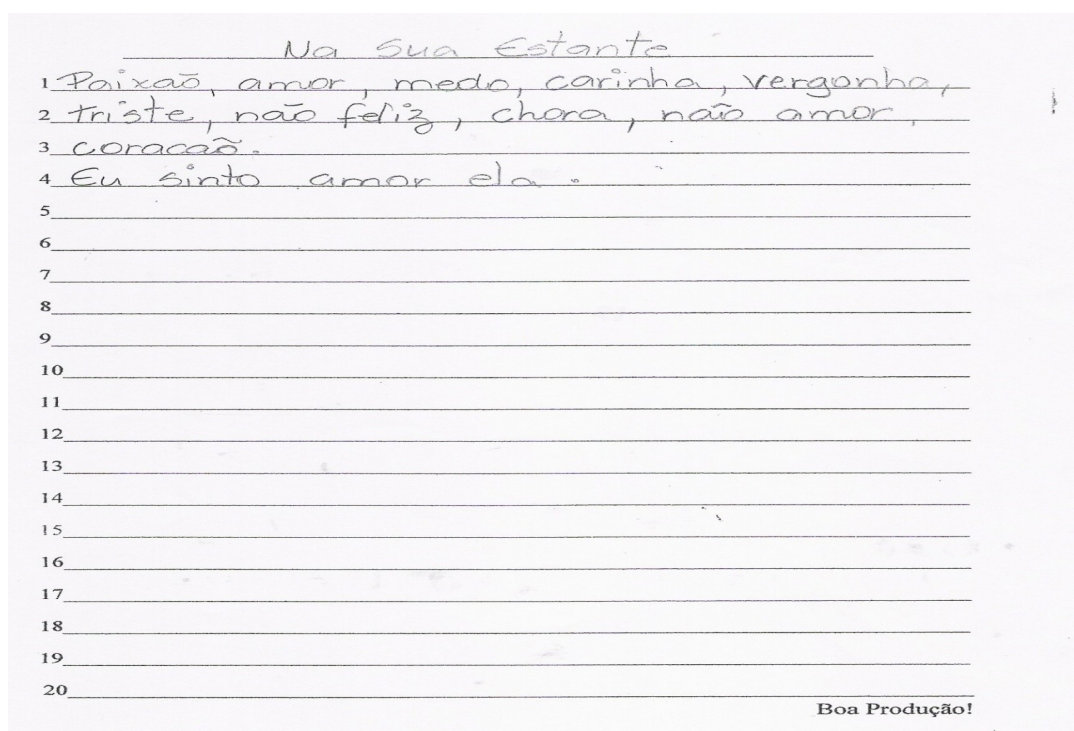 Na Sua Estante
1 Paixaõ, amor, medo, carinha, vergonha,
2 triste, não feliz, chora, não amor,
3 coracaõ.
4 Eu sinto amor ela.
5
6
7
8
9
10
11
12
13
14
15
16
17
18
19
20
Boa Produção!